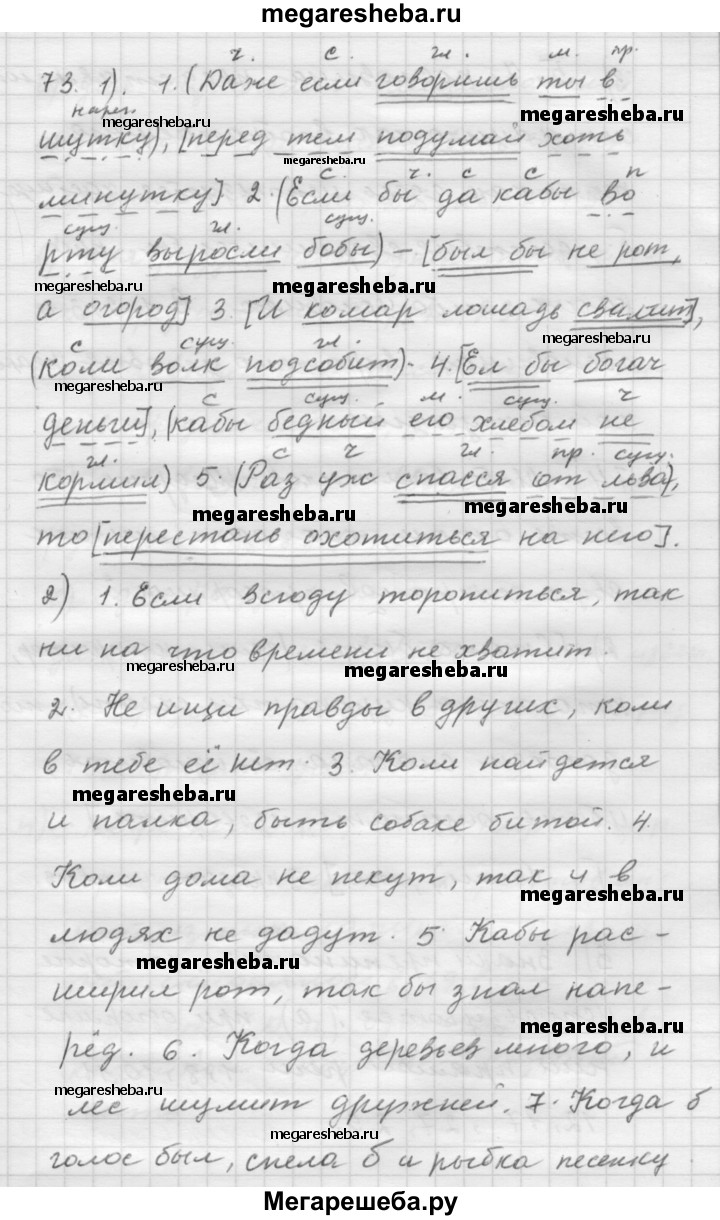 megaresheba.ru
ч. с. гл. м. пр.
73. 1). 1. (Даже если говоришь ты в
нареч.
шутку), [перед тем подумай хоть
megaresheba.ru
megaresheba.ru
с. ч. с с п
минутку] 2. (Если бы да кабы во
сущ. гл. сущ.
рту выросли бобы) – [был бы не рот,
megaresheba.ru
megaresheba.ru
а огород] 3. [И комар лошадь свалит],
с сущ. гл.
(коли волк подсобит). 4. [Ел бы богач
megaresheba.ru
megaresheba.ru
с сущ. м. сущ. ч
деньги], (кабы бедный его хлебом не
гл. с ч гл. пр. сущ.
кормил) 5. (Раз уж спасся от льва),
megaresheba.ru
megaresheba.ru
то [перестань охотиться на него].
2) 1. Если всюду торопиться, так
ни на что времени не хватит.
megaresheba.ru
megaresheba.ru
2. Не ищи правды в других, коли
в тебе её нет. 3. Коли найдется
megaresheba.ru
megaresheba.ru
и палка, быть собаке битой. 4.
Коли дома не пекут, так и в
megaresheba.ru
людях не дадут. 5. Кабы рас-
megaresheba.ru
ширил рот, так бы знал напе-
megaresheba.ru
рёд. 6. Когда деревьев много, и
megaresheba.ru
лес шумит дружней. 7. Когда б
megaresheba.ru
голос был, спела б и рыбка песенку.
Мегарешеба.ру